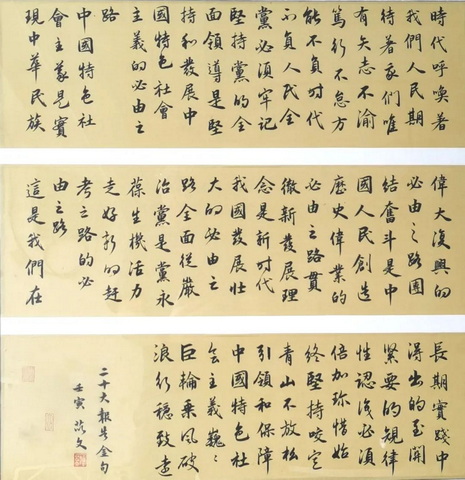 時代呼喚著
我們人民期
待著我們唯
有矢志不渝
篤行不怠方
能不負时代
不負人民全
黨必須牢记
堅持黨的全
面領導是堅
持和發展中
國特色社會
主義的必由之
路
中國特色社
會主義是實
現中華民族
偉大復興的
必由之路團
結奮斗是中
國人民創造
歷史偉業的
必由之路貫
徹新發展理
念是新时代
我國發展壯
大的必由之
路全面從嚴
治黨是黨永
葆生機活力
走好新的趕
考之路的必
由之路
這是我們在
長期實踐中
得出的至関
緊要的規律
性認識必須
倍加珍惜始
終堅持咬定
青山不放松
引領和保障
中國特色社
会主義巍巍
巨輪乘風破
浪行穩致遠
二十大報告金句
壬寅 文